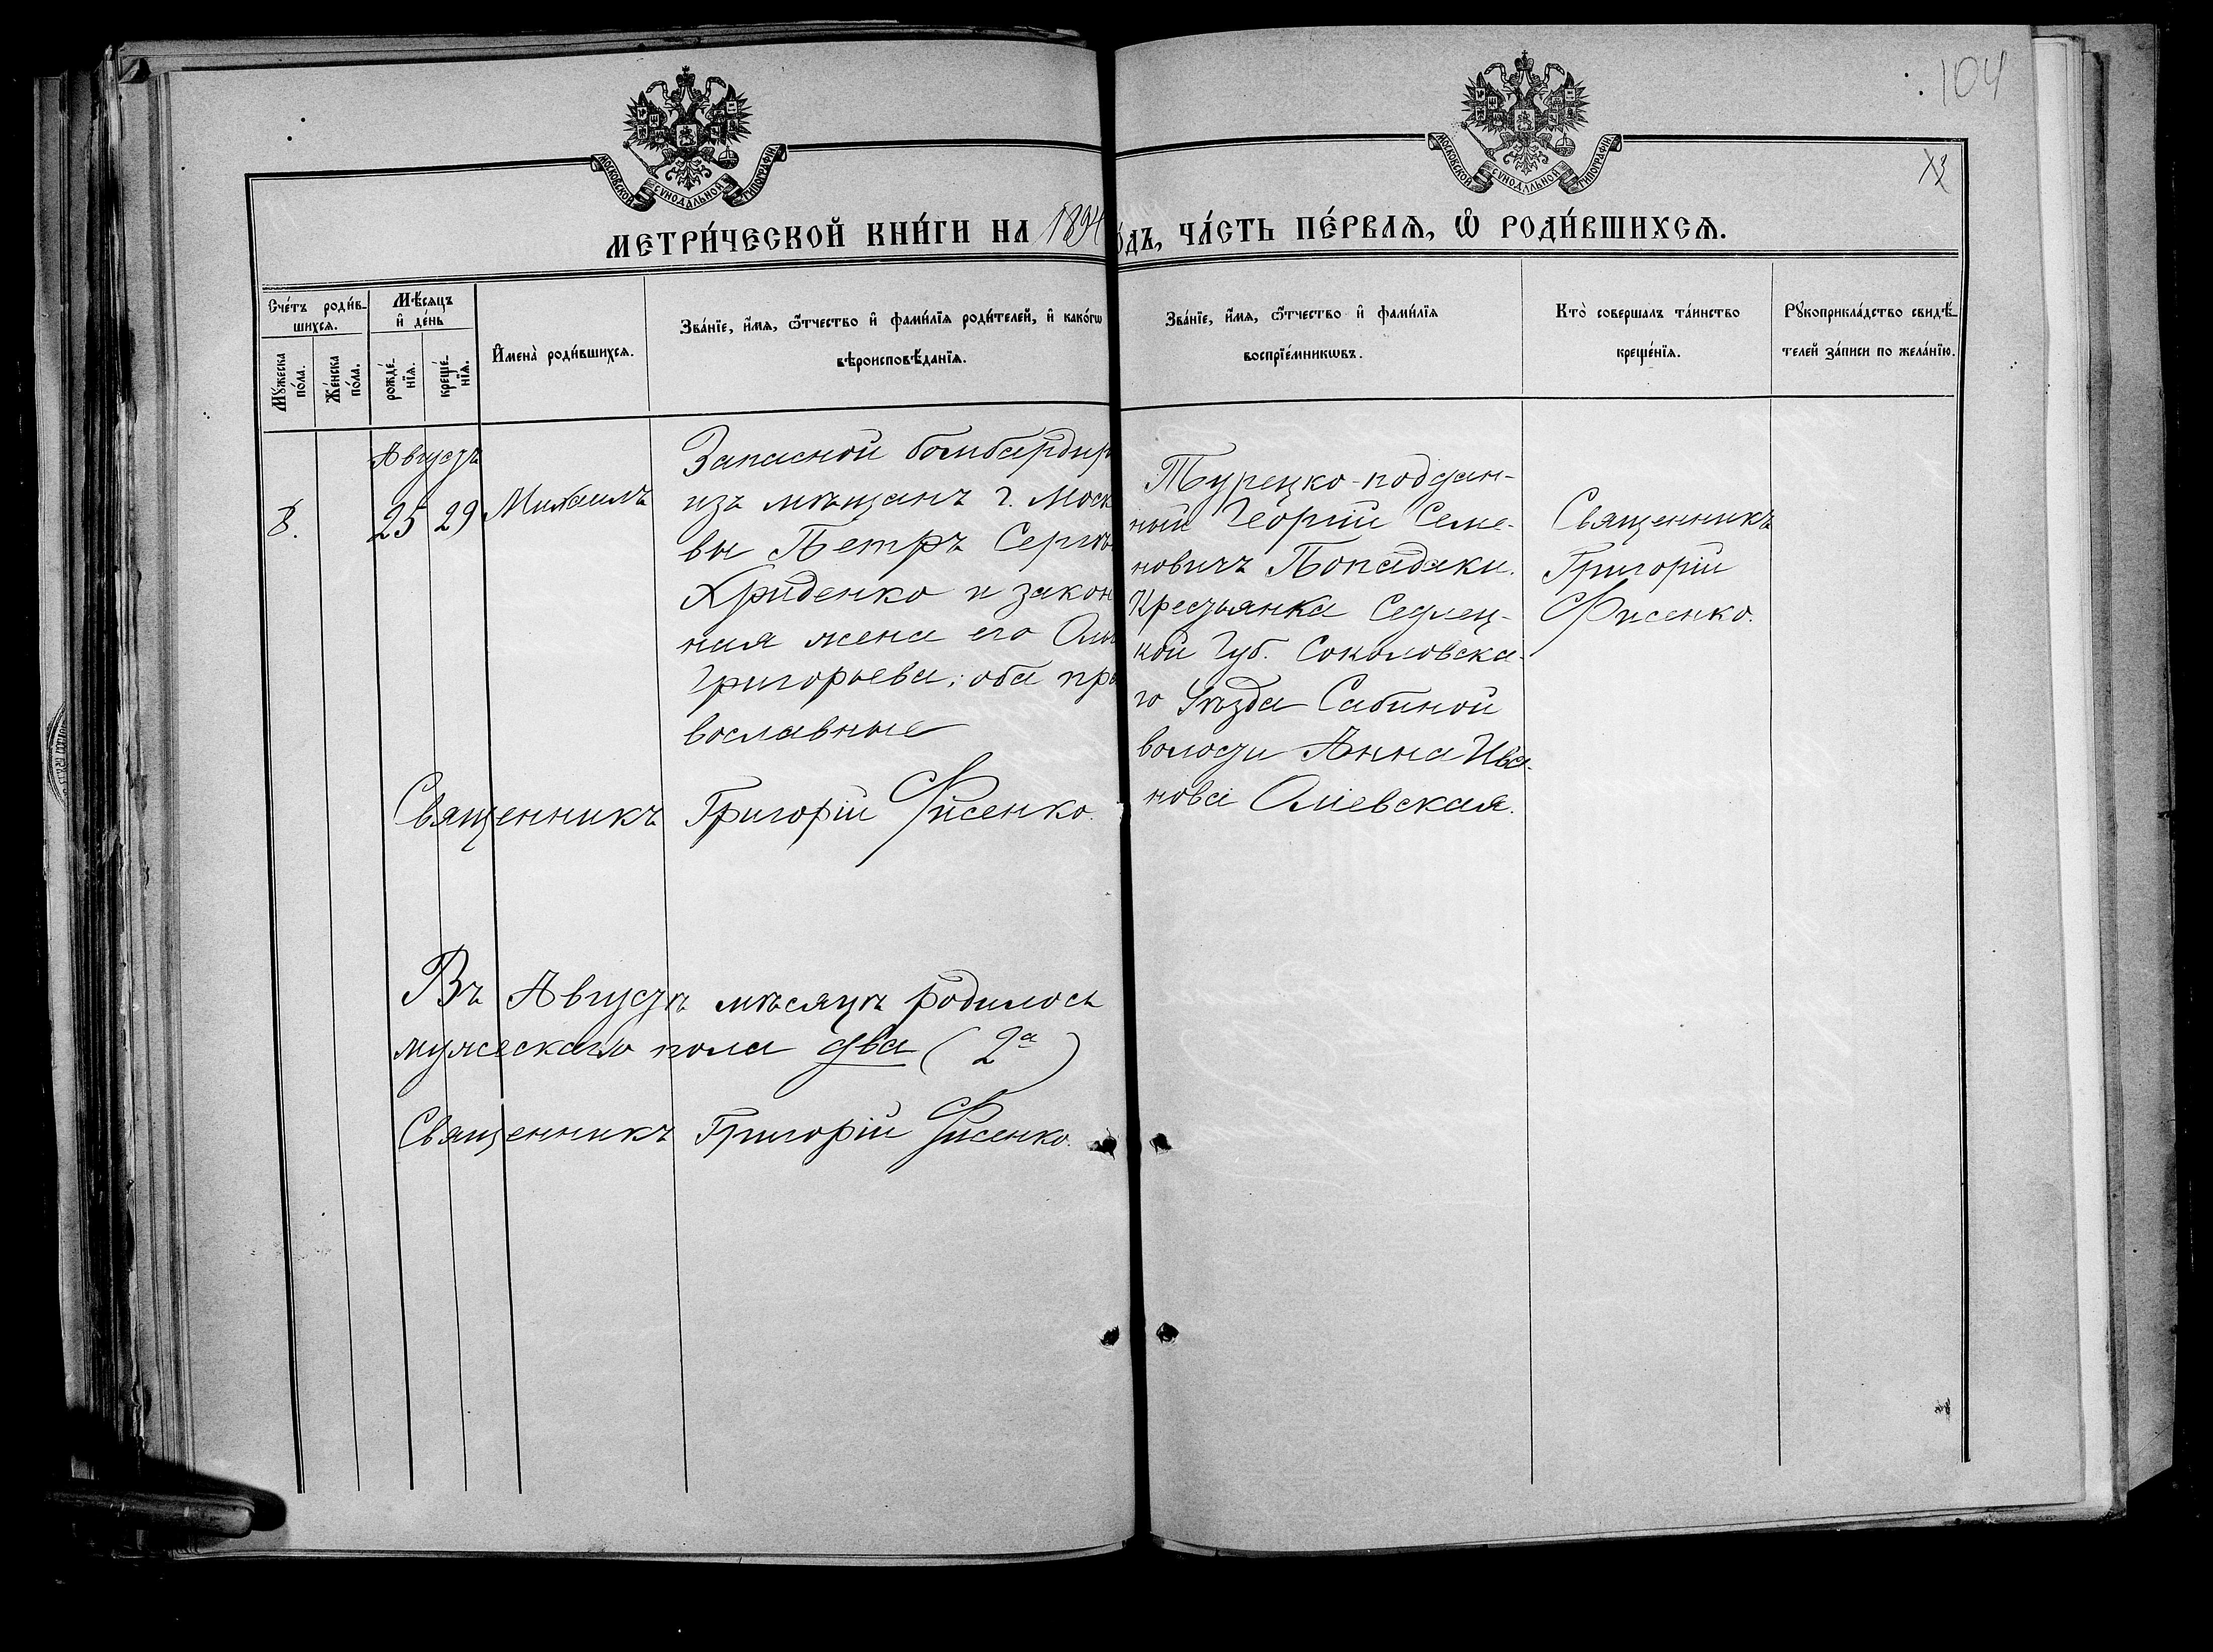 104
МОСКОВСКОЙ СУНОДАЛЬНОЙ ТИПОГРАФІИ
МОСКОВСКОЙ СУНОДАЛЬНОЙ ТИПОГРАФІИ
МЕТРИ́ЧЕСКОЙ КНИ́ГИ НА 1894
О́ДЪ, ЧА́СТЬ ПЕ́РВАѦ, Ѡ҆ РОДИ́ВШИХСѦ.
Сче́тъ роди́в-
шихсѧ.
Мѣ́сѧцъ
и҆ де́нь
Мꙋжеска
по́ла.
Же́нска
по́ла.
рожде́-
нїѧ.
креще́-
нїѧ.
И҆мена̀ роди́вшихсѧ.
Зва́нїе, и҆́мѧ, ѻ҆́тчество и҆ фами́лїѧ роди́телей, и҆ како́гѡ
вѣроисповѣ́данїѧ.
Зва́нїе, и҆́мѧ, ѻ҆́тчество и҆ фами́лїѧ
воспрїе́мникѡвъ.
Кто̀ совершалъ та́инство
креще́нїѧ.
Рꙋкоприкла́дство свидѣ́-
телей за́писи по жела́нїю.
Августъ
8.
25 29
Михаилъ
Запасной бомбардир
изъ мѣщанъ г. Моск
вы Петръ Сергѣ
Хриденко и закон
ная жена его Оль
Григорьева; оба пра
вославные
Турецко-поддан-
ный Георгій Семе-
новичъ Попадаки.
Крестьянка Седлец-
кой Губ. Соколовска-
го Уѣзда Сабиной
волости Анна Ива-
нова Олиевская.
Священникъ
Григорій
Фисенко.
Священникъ Григорій Фисенко.
Въ Августѣ мѣсяцѣ родилось
мужескаго пола два (2а)
Священникъ Григорій Фисенко.